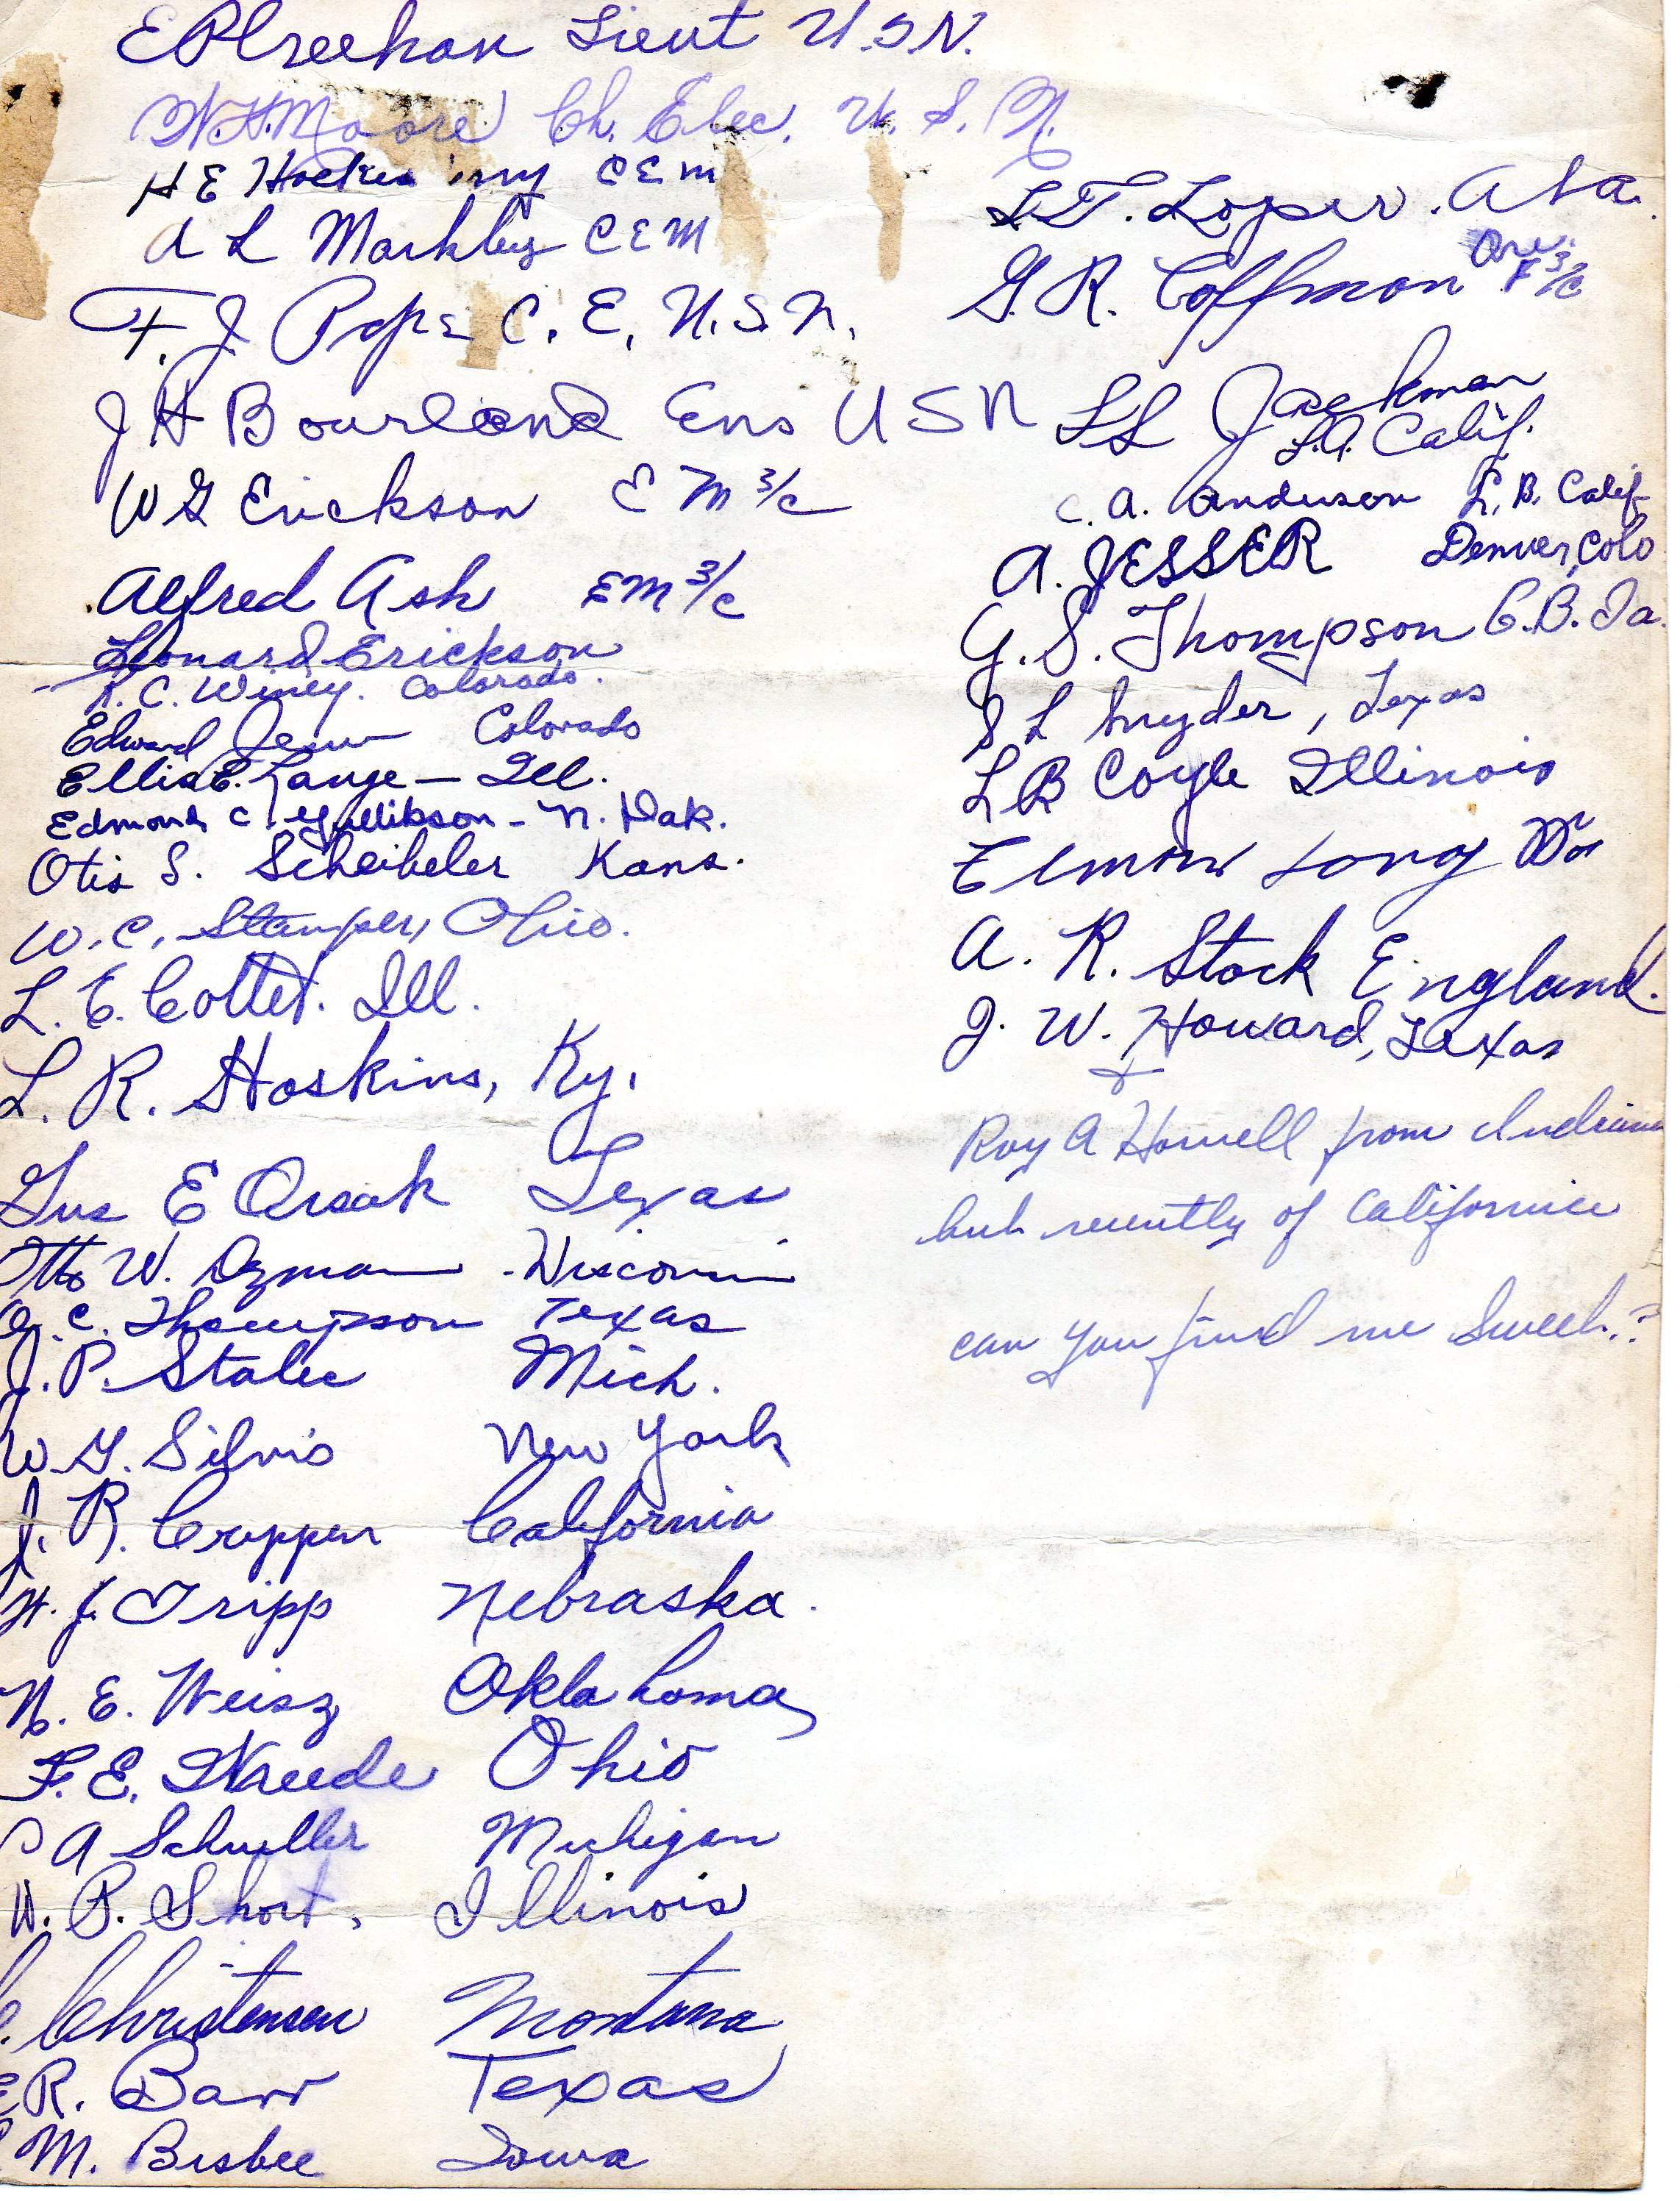 E P Creehan Lieut U.S.N.
W. H. Moore Ch. Elec. U. S. N.
H E CEM
A L Markley CEM
F. J. Pope C. E. U.S.N.
J H Bourland Ens USN
W G Erickson EM 3/c
Alfred Ash EM 3/c
Leonard Erickson
C. Winey. Colorado.
Edward Colorado
Ellis E. Lange - Ill.
Edmond C. Gullikson - N. Dak.
Otis S. Scheibeler Kans.
W. C. Stamper, Ohio.
L. E. Collet. Ill.
L. R. Hoskins, Ky.
Gus E Orsak Texas
Otto W. Ozman Wisconsin
C. Thompson Texas
J. P. Stalec Mich.
W. G. Silvis New York
J. R. Crippen California
H. J. Tripp Nebraska.
N. E. Weisz Oklahoma
F. E. Ohio
A Schuller Michigan
W. P. Short. Illinois
C. Christensen Montana
E R. Barr Texas
M. Bisbee Iowa
L.T. Loper. Ala.
G. R. Coffman Ore. F 3/c
L L Jackman
L.A. Calif.
C. A. Anderson L. B. Calif
A. JESSER Denver, Colo
G. S. Thompson C.B. Ia.
S L Snyder, Texas
L R Coyle Illinois
Elmore Long
A. R. Stock England.
J. W. Howard, Texas
Roy A Howell from Indiana
but recently of California
can you find me Sweet.?